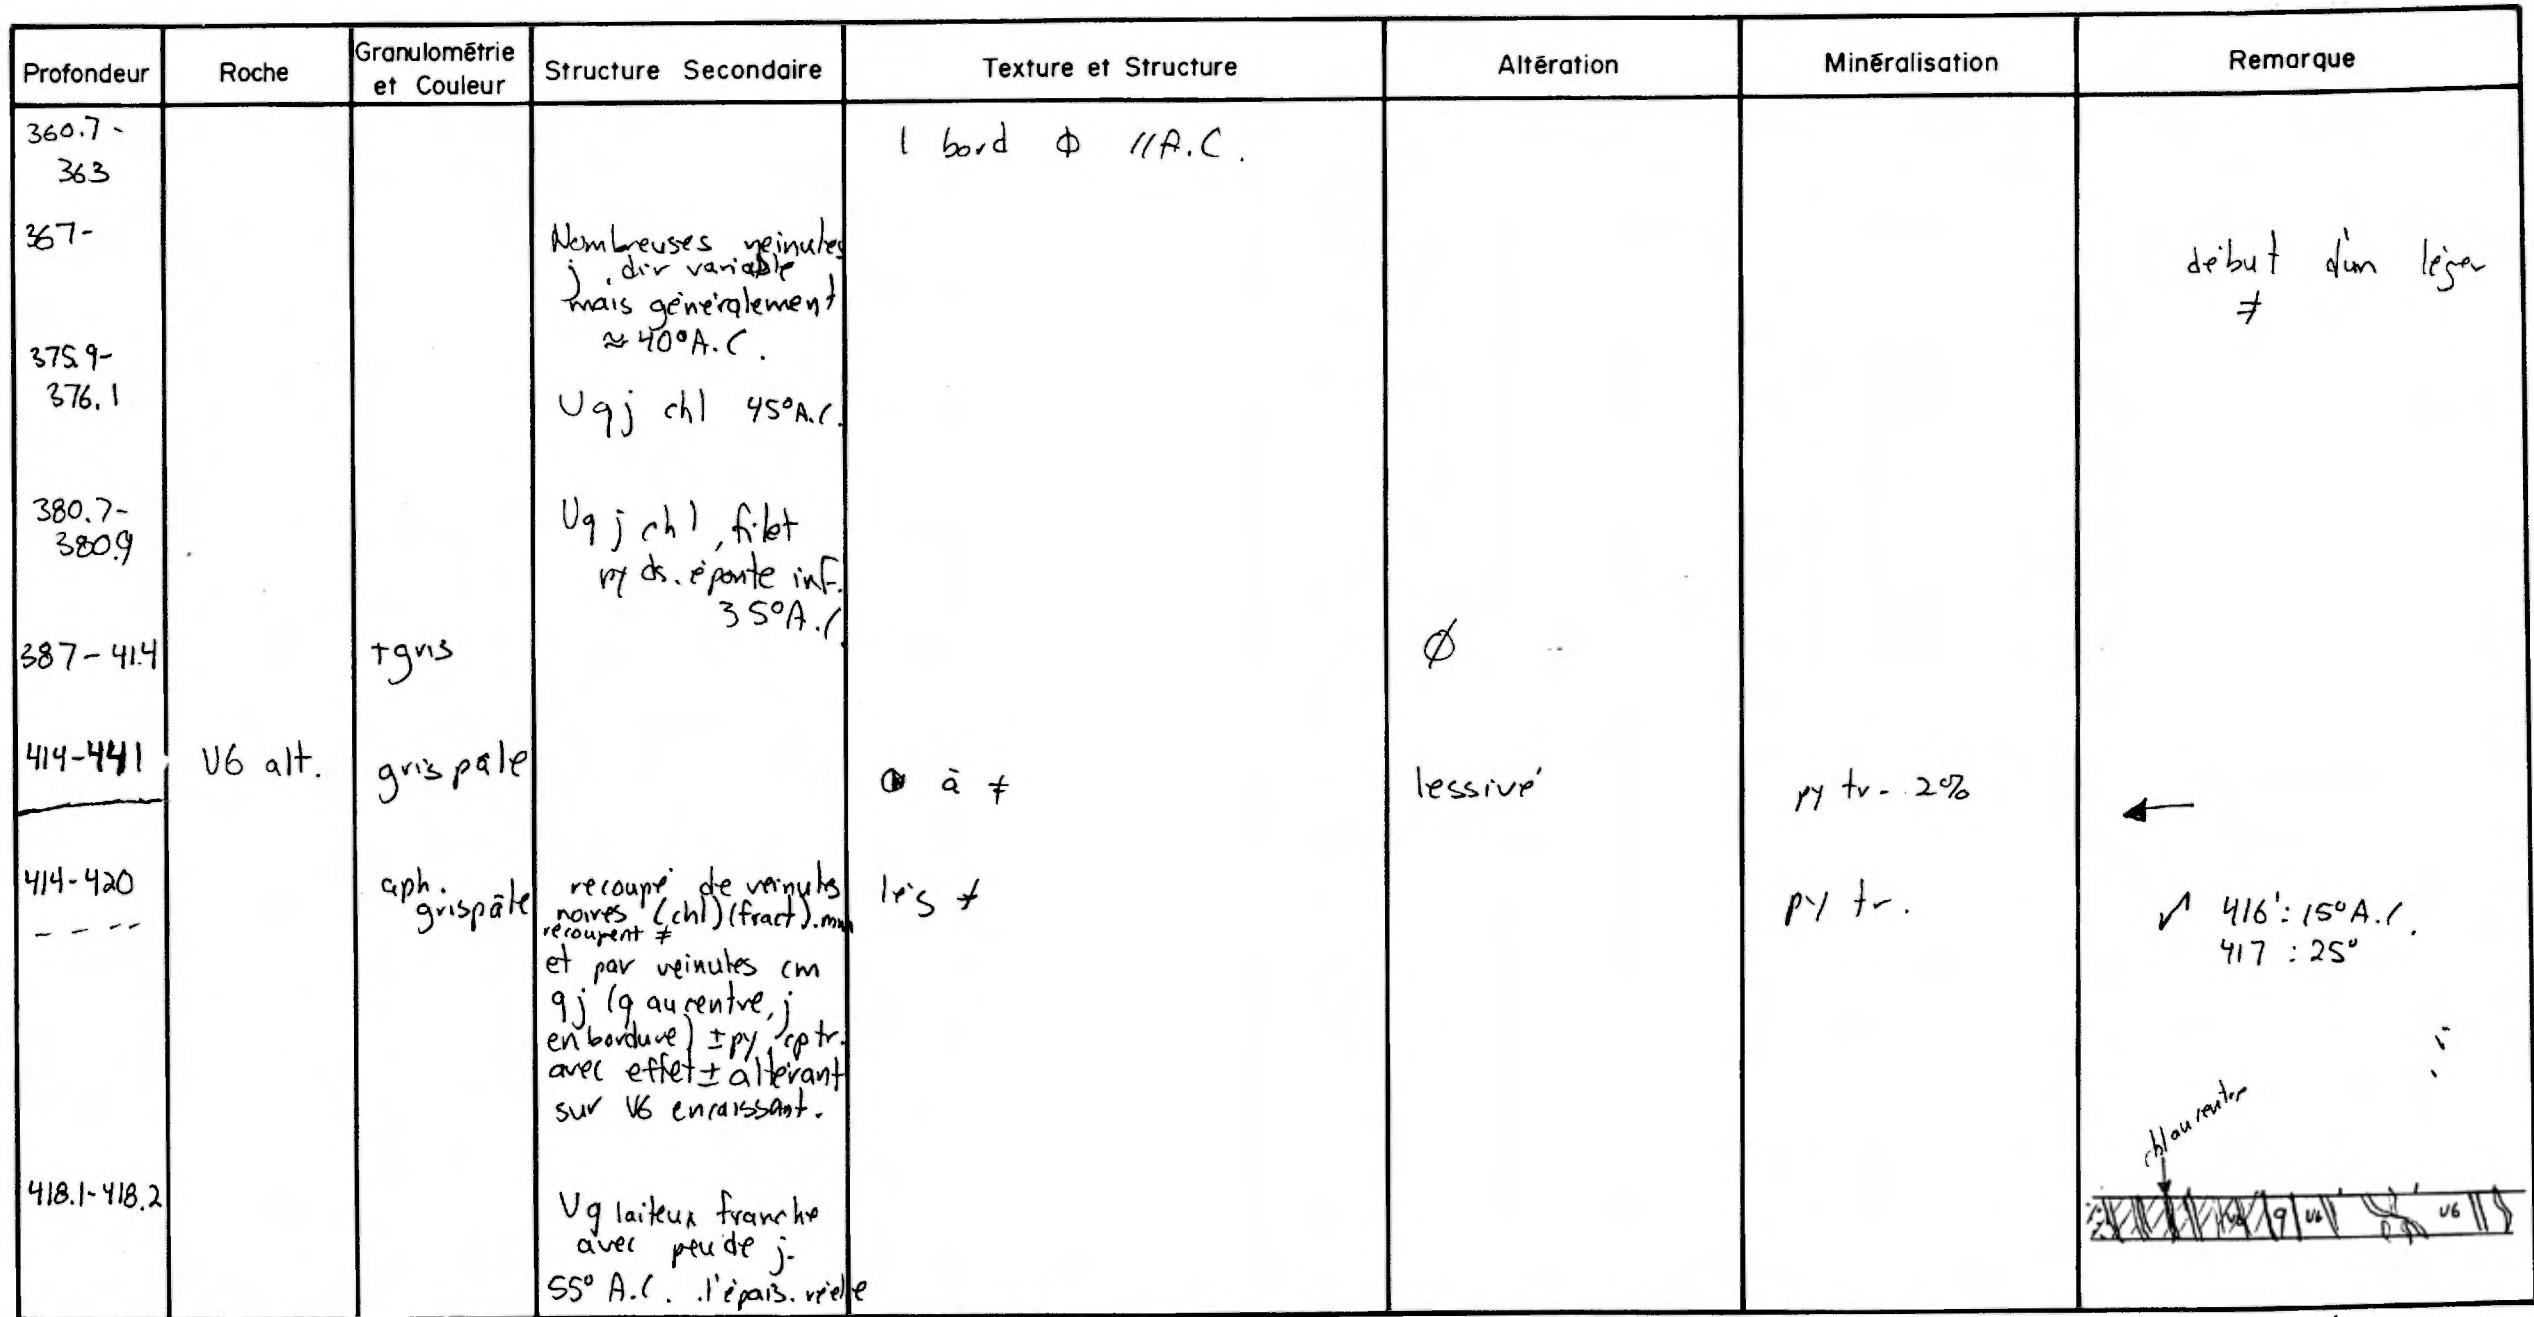 Profondeur
Roche
Granulométrie
et Couleur
Structure Secondaire
Texture et Structure
Altération
Minéralisation
Remarque
360.7 -
363
1 bord Φ //A.C.
367-
Nombreuses veinules
j, dir variable
mais généralement
≈ 40°A.C.
début d'un léger
≠
375.9-
376.1
Vqj chl 45°A.C.
380.7-
380.9
Vqj chl, filet
py ds. éponte inf.
35°A.C.
387-414
+gris
Ø
414-441
V6 alt.
gris pâle
à ≠
lessivé
py tr - 2%
←
414-420
aph.
gris pâle
recoupé de veinules
noires (chl) (fract). mm
recoupent ≠
et par veinules cm
qj (q au centre, j
en bordure) ± py, cp tr.
avec effet ± altérant
sur V6 encaissant.
lég ≠
py tr.
416': 15°A.C.
417 : 25°
chl au centre
418.1-418.2
Vq laiteux franche
avec peu de j.
55° A.C. .1' épais. réelle
V6
q
V6
V6